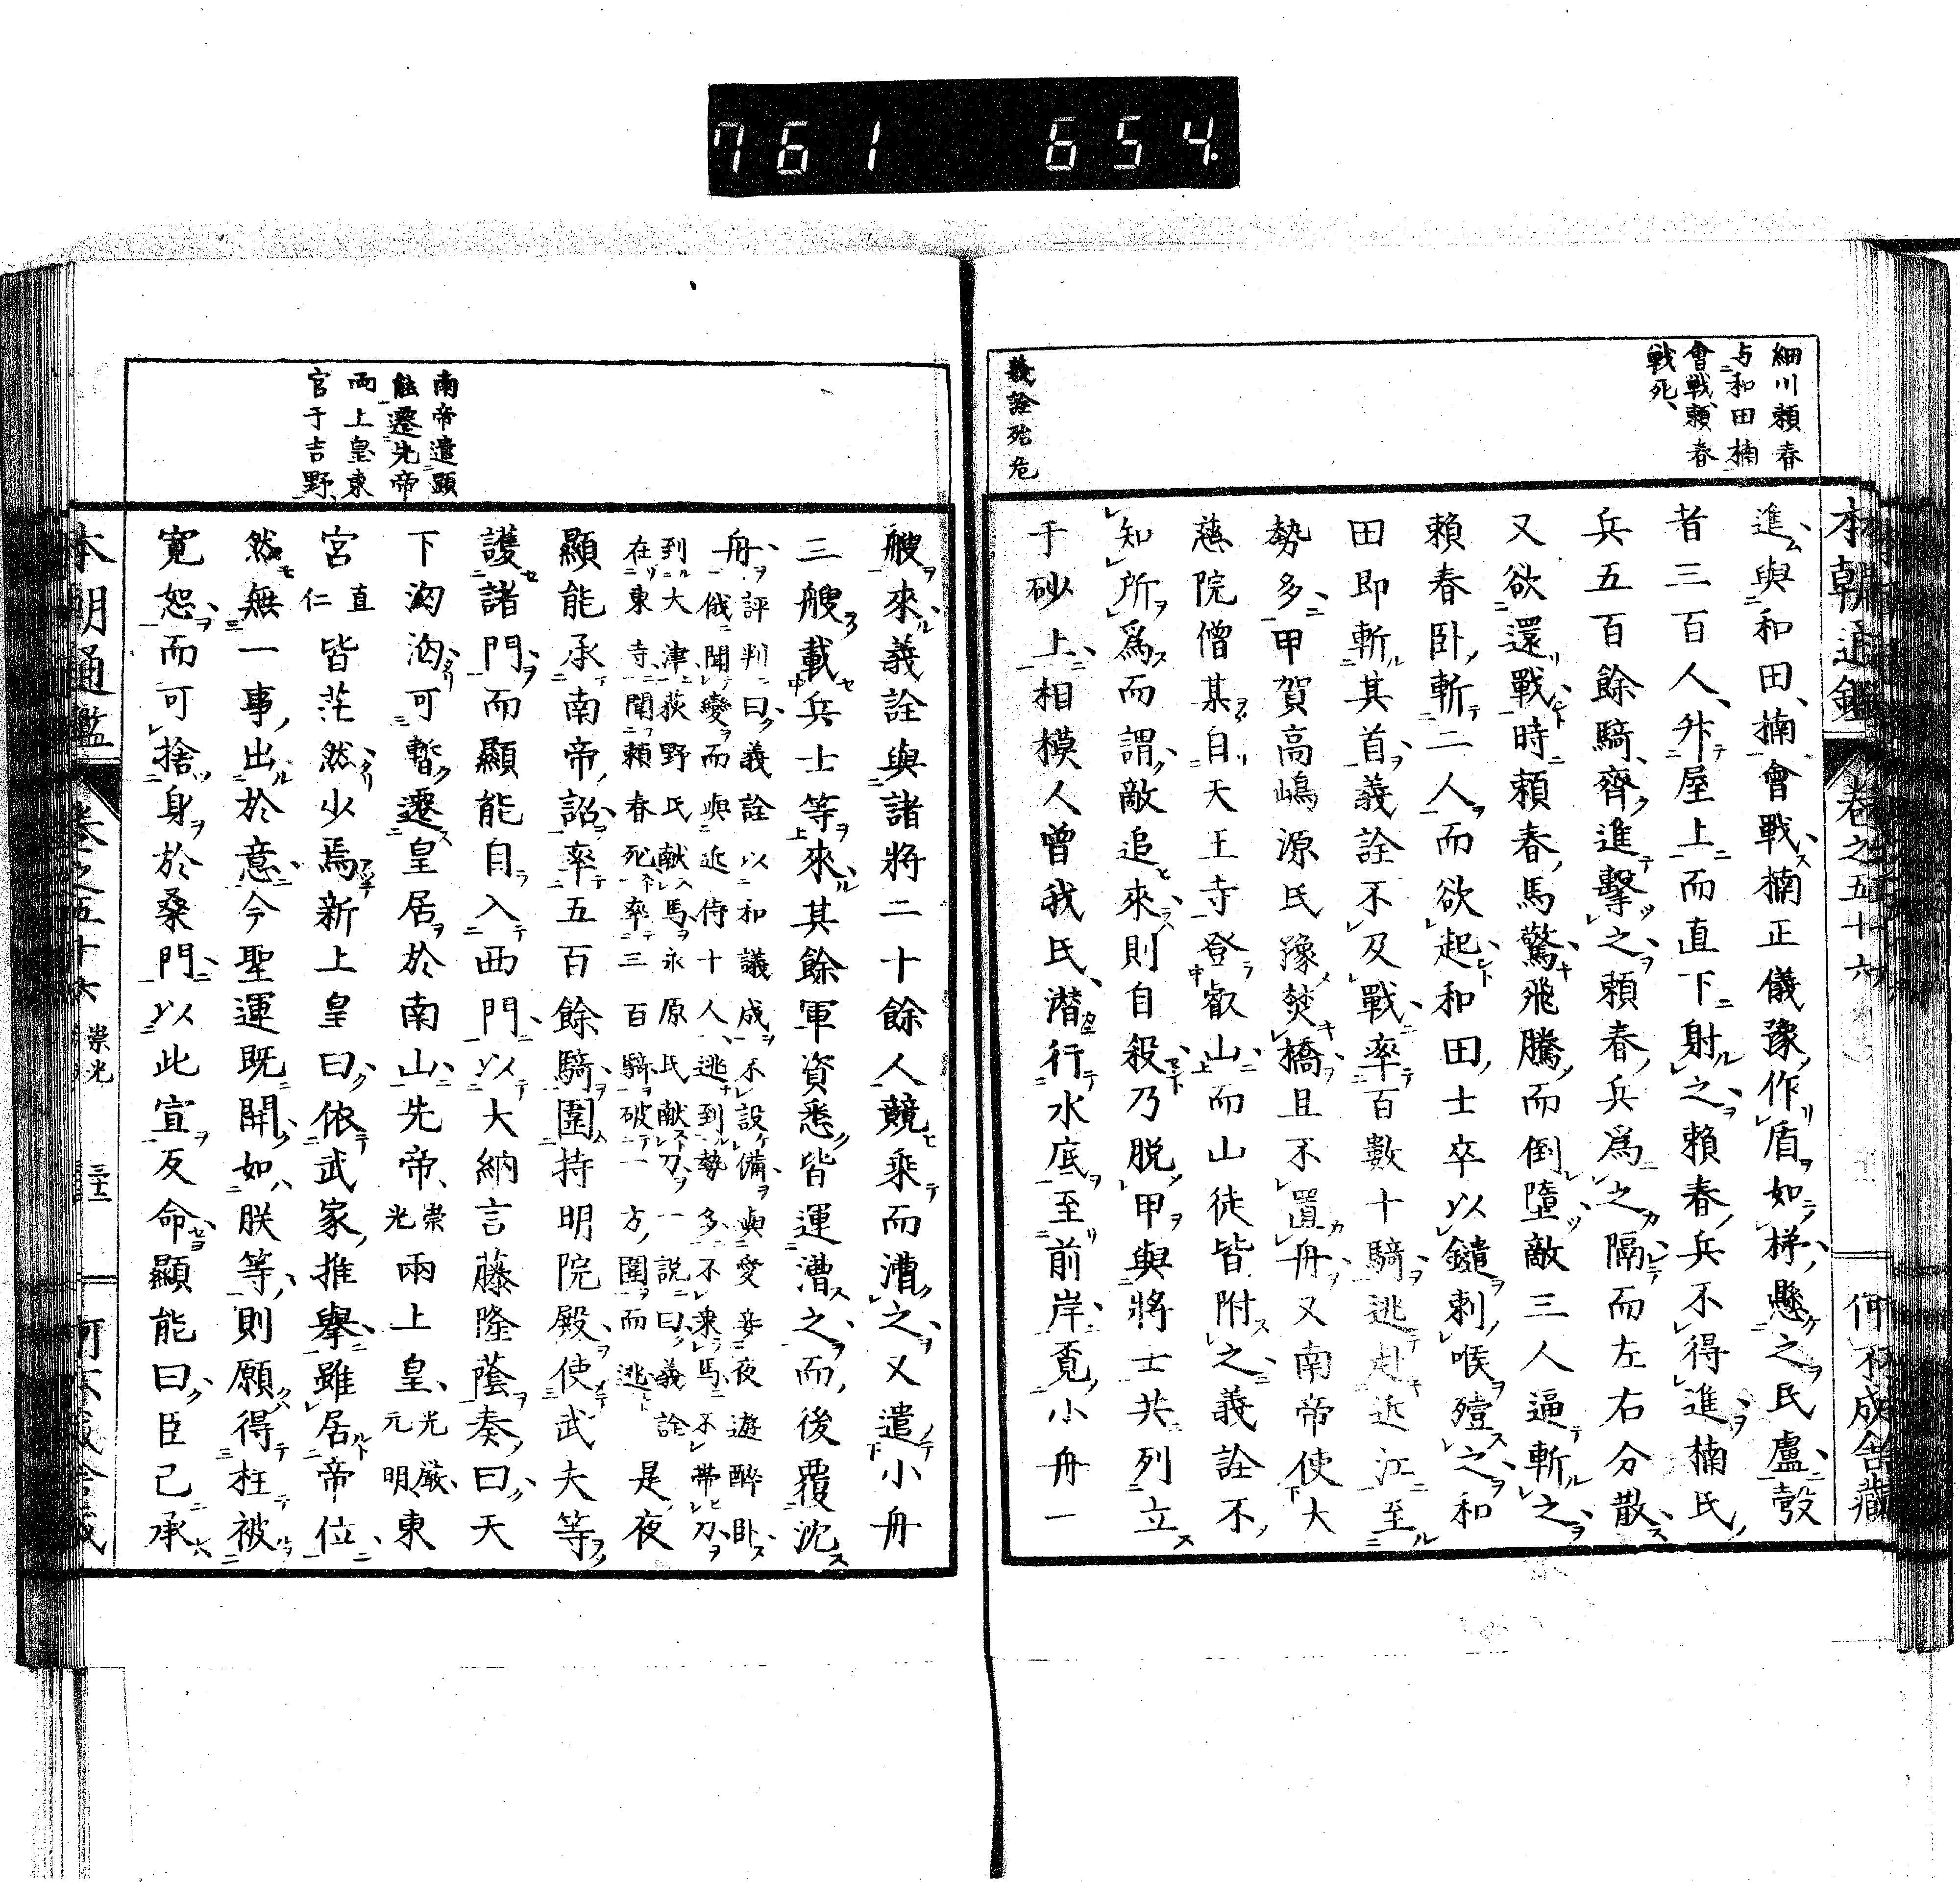 761 654.
細川頼春
与和田楠
會戰、頼春
戰死、
義詮殆危
本朝通鑑 卷之五十六 何不成舎藏
進與和田、楠會戰、楠正儀豫作盾如梯、懸之民盧、彀
者三百人、升屋上而直下射之頼春兵不得進楠氏
兵五百餘騎、齊進擊之頼春兵爲之隔而左右分散
又欲還戰時頼春馬驚飛騰而倒墮敵三人逼斬之
頼春卧斬二人而欲起和田士卒以鑓刺喉殪之和
田即斬其首義詮不及戰率百數十騎逃赴近江至
勢多甲賀高嶋源氏豫焚橋且不置舟又南帝使大
慈院僧某自天王寺登叡山而山徒皆附之義詮不
知所爲而謂敵追來則自殺乃脱甲與將士共列立
于砂上相模人曾我氏、潛行水底至前岸覓小舟一
南帝遣顕
能遷先帝
両上皇東
宮于吉野、
艘來義詮與諸將二十餘人競乘而漕之又遣小舟
三艘載兵士等來其餘軍資悉皆運漕之而後覆沈
舟、評判曰義詮以和議成不設備與愛妾夜遊醉卧
俄聞變而與近侍十人逃到勢多不乘馬不帶刀
到大津荻野氏献馬永原氏献刀一説曰義詮
在東寺聞頼春死率三百騎破一方圍而逃 是夜
顯能承南帝詔率五百餘騎圍持明院殿使武夫等
護諸門而顯能自入西門以大納言藤隆蔭奏曰天
下洶洶可暫遷皇居於南山先帝、崇光兩上皇、光嚴、光明、東
宮直仁皆茫然少焉新上皇曰依武家推擧雖居帝位
然無一事出於意今聖運既開如朕等則願得枉被
寛恕而可捨身於桑門以此宣反命顯能曰臣已承
本朝通鑑 卷之五十六 崇光 何不成舎藏